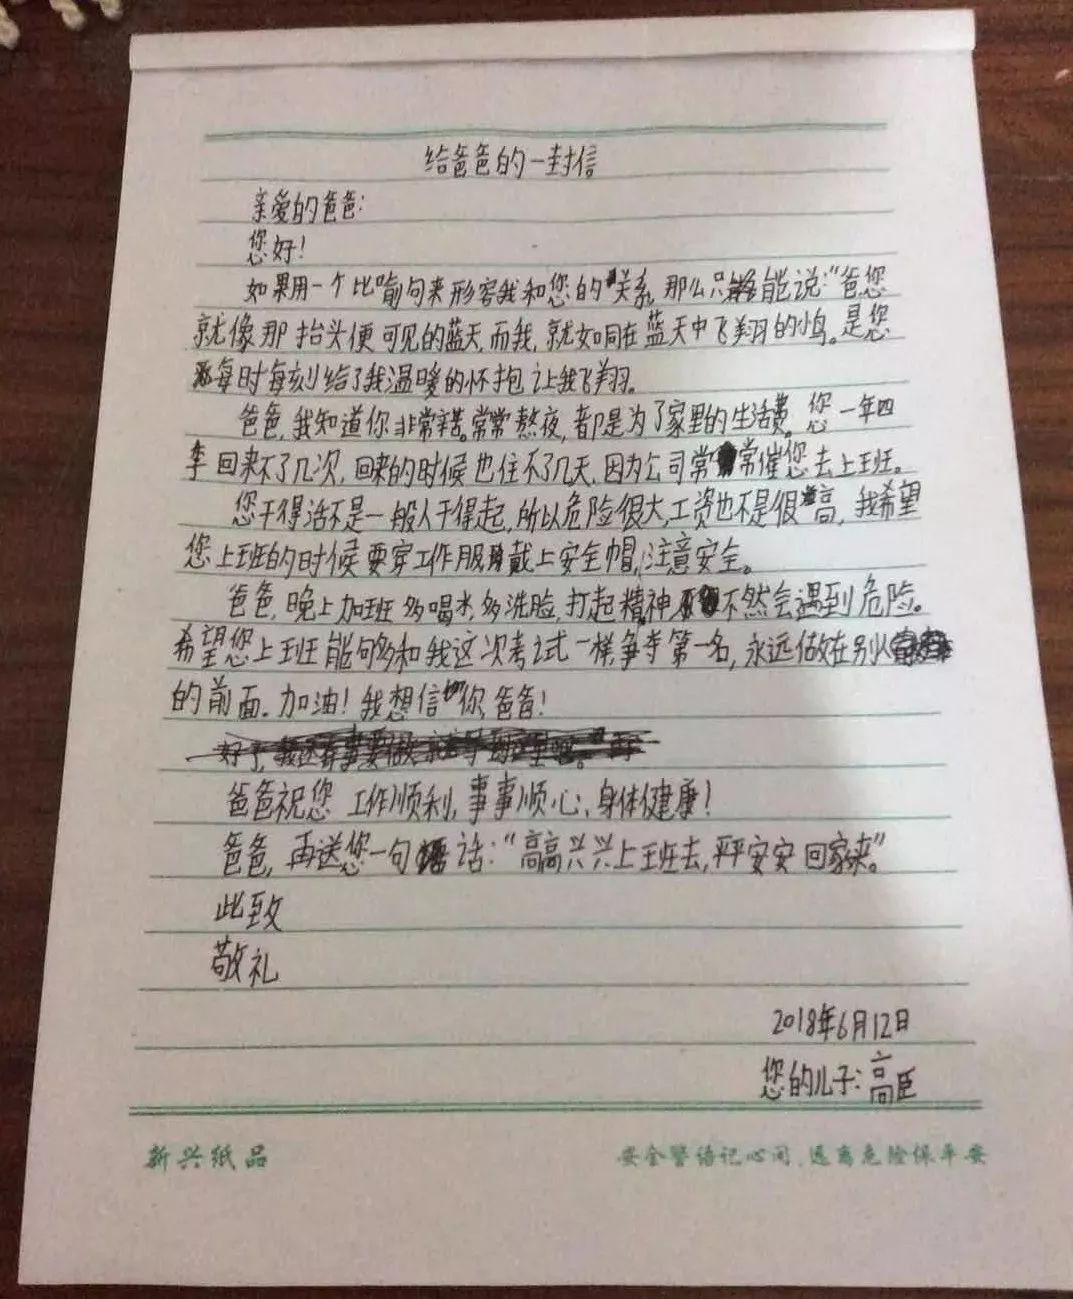 给爸爸的一封信
亲爱的爸爸:
您好!
如果用一个比喻句来形容我和您的关系,那么只能说:“爸您
就像那抬头便可见的蓝天,而我,就如同在蓝天中飞翔的小鸟。是您
每时每刻给了我温暖的怀抱让我飞翔。
爸爸,我知道你非常辛苦。常常熬夜,都是为了家里的生活费。您一年四
季回来不了几次,回来的时候也住不了几天,因为公司常常催您去上班。
您干得活不是一般人干得起,所以危险很大,工资也不是很高,我希望
您上班的时候要穿工作服戴上安全帽,注意安全。
爸爸,晚上加班多喝水,多洗脸,打起精神,不然会遇到危险。
希望您上班能够多和我这次考试一样,争夺第一名,永远做在别人
的前面。加油!我想信你,爸爸!
爸爸祝您工作顺利,事事顺心,身体健康!
爸爸,再送您一句话:“高高兴兴上班去,平平安安回家来”。
此致
敬礼
2018年6月12日
您的儿子:高臣
新兴纸品
安全警语记心间,远离危险保平安